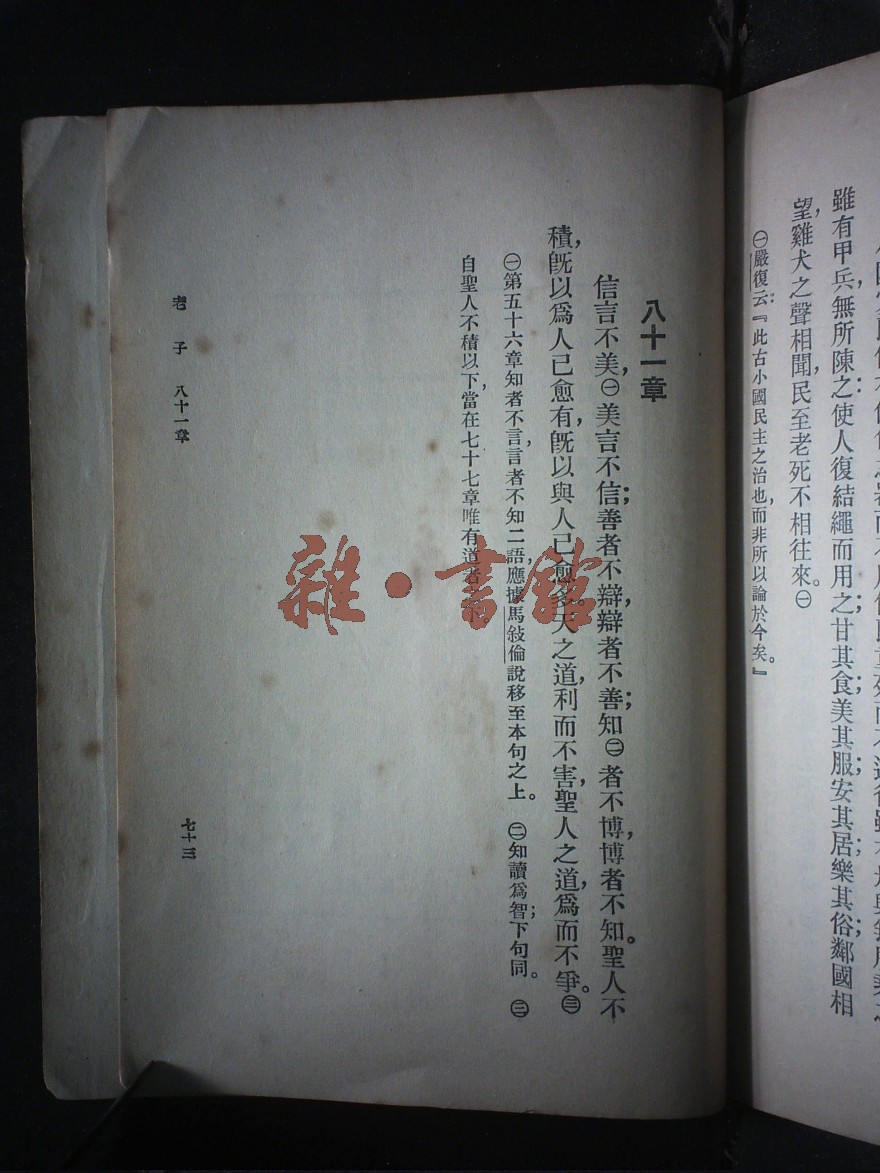 雖有甲兵，無所陳之；使人復結繩而用之：甘其食，美其服，安其居，樂其俗；鄰國相
望，雞犬之聲相聞，民至老死不相往來。㊀
㊀嚴復云：『此古小國民主之治也，而非所以論於今矣。』
八十一章
信言不美，㊀美言不信；善者不辯，辯者不善；知㊁者不博，博者不知。聖人不
積，旣以爲人已愈有，旣以與人已愈多。天之道，利而不害；聖人之道，爲而不爭。㊂
㊀第五十六章知者不言，言者不知二語，應據馬敍倫說移至本句之上。 ㊁知讀爲智；下句同。 ㊂
自聖人不積以下，當在七十七章唯有道者之下。
老子 八十一章
七十三
雜·書館